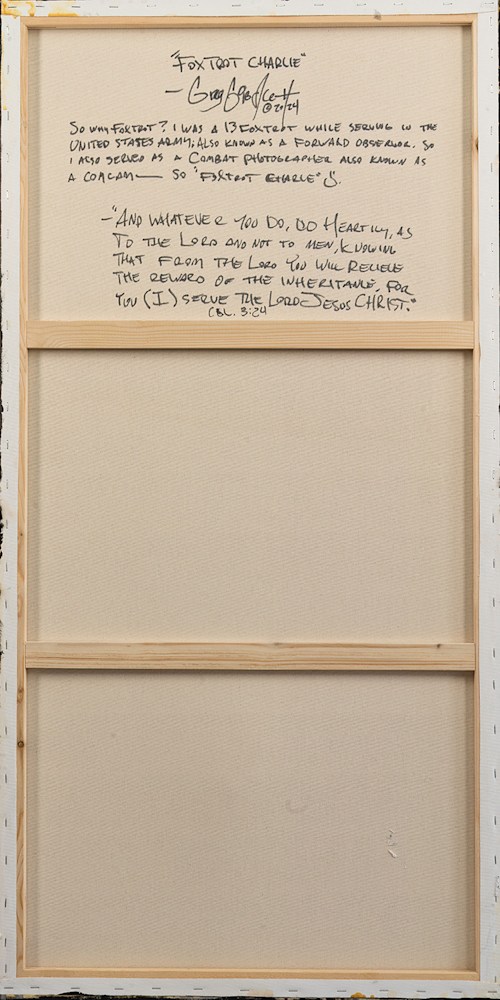 "FOXTROT CHARLIE"
— Greg
©2024
SO WHY FOXTROT? I WAS A 13 FOXTROT WHILE SERVING IN THE
UNITED STATES ARMY; ALSO KNOWN AS A FORWARD OBSERVOR. SO
I ALSO SERVED AS A COMBAT PHOTOGRAPHER ALSO KNOWN AS
A COMCAM — SO "FOXTROT CHARLIE"
—"AND WHATEVER YOU DO, DO HEARTILY, AS
TO THE LORD AND NOT TO MEN, KNOWING
THAT FROM THE LORD YOU WILL RECIEVE
THE REWARD OF THE INHERITANCE, FOR
YOU (I) SERVE THE LORD JESUS CHRIST."
COL. 3:24